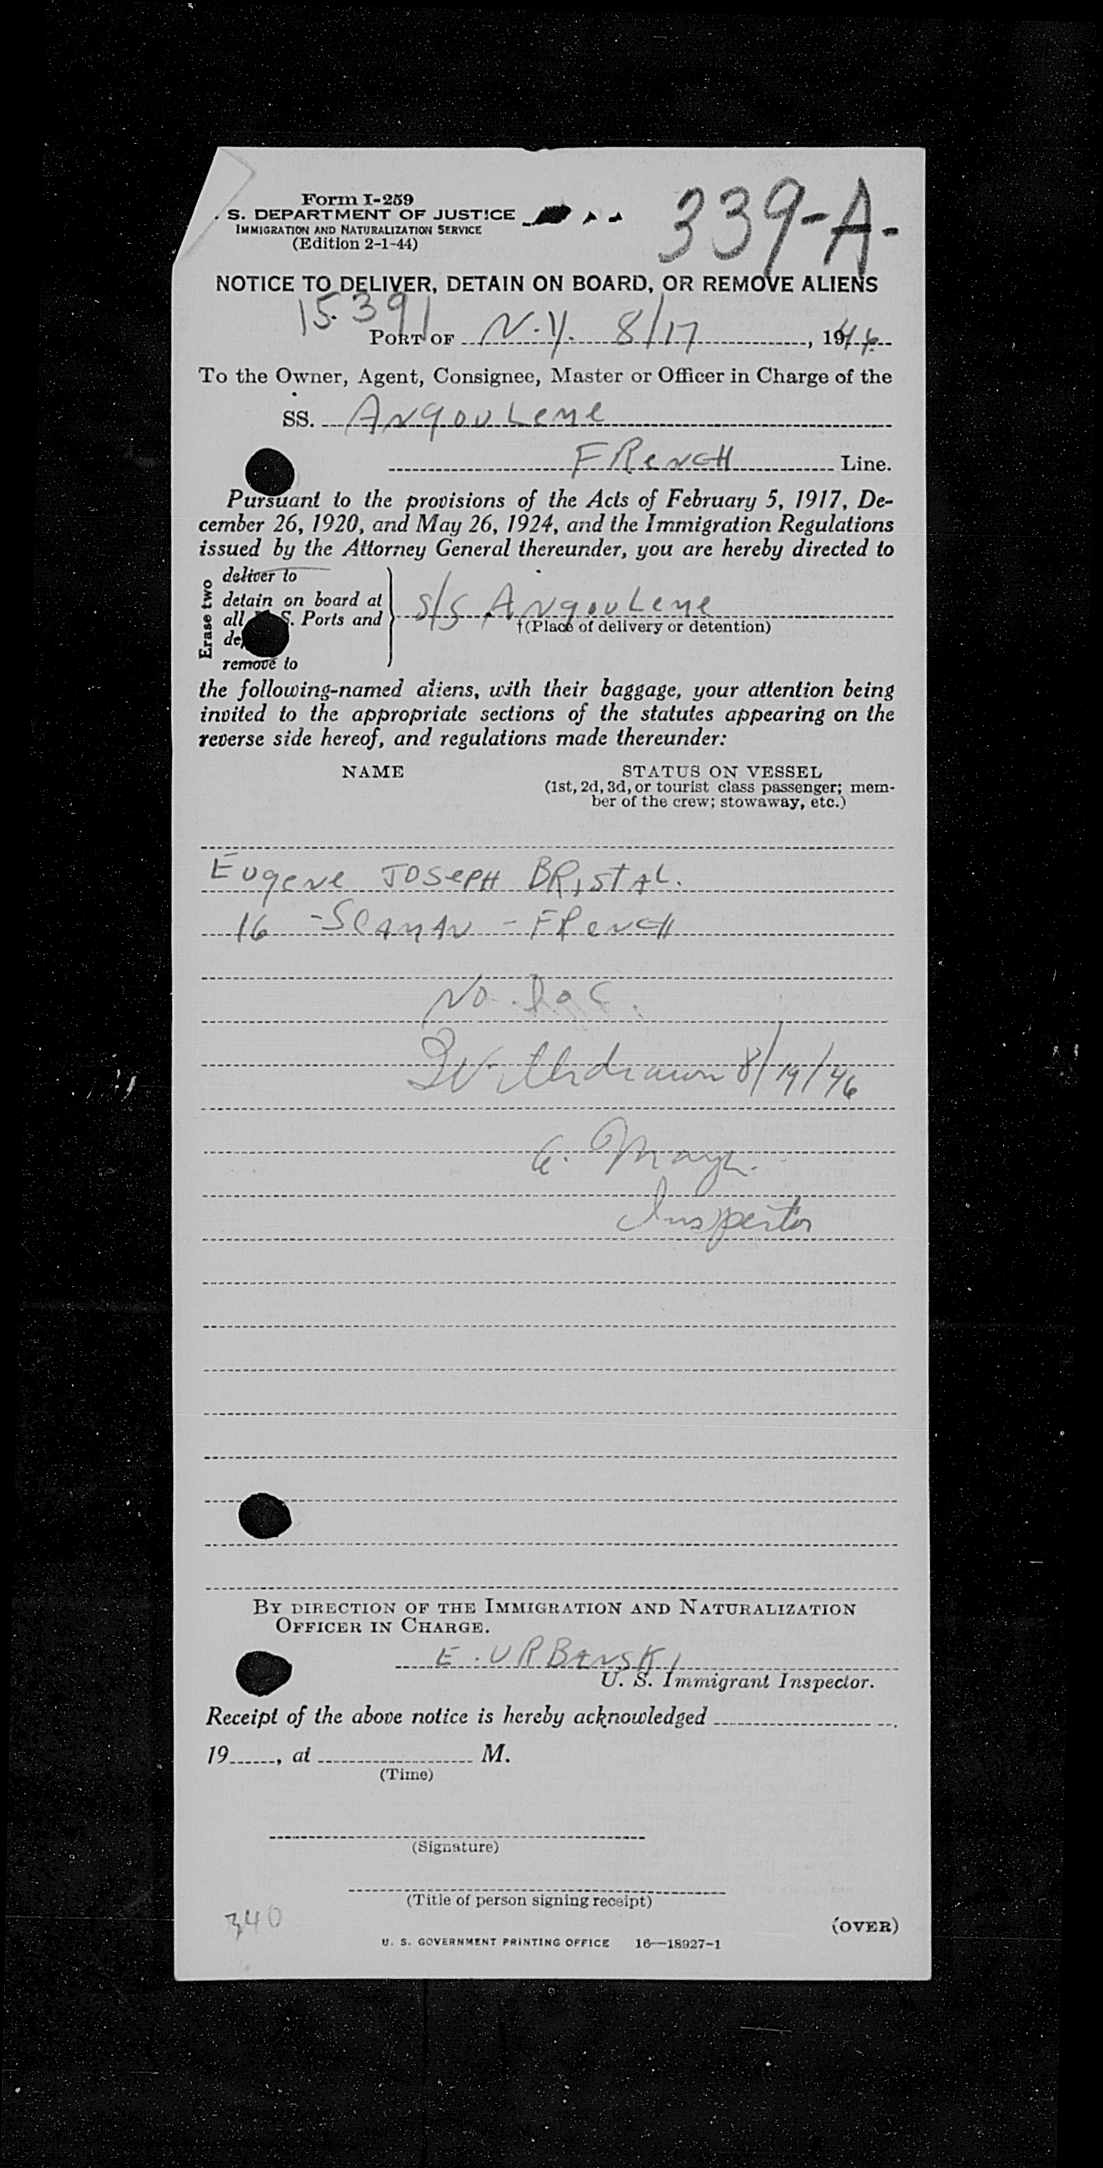 Form I-259
339-A-
. S. DEPARTMENT OF JUSTICE
IMMIGRATION AND NATURALIZATION SERVICE
(Edition 2-1-44)
NOTICE TO DELIVER, DETAIN ON BOARD, OR REMOVE ALIENS
15391
PORT OF N.Y. 8/17, 1946
To the Owner, Agent, Consignee, Master or Officer in Charge of the
SS. ANgouLeMe
FReNcH Line.
Pursuant to the provisions of the Acts of February 5, 1917, De-
cember 26, 1920, and May 26, 1924, and the Immigration Regulations
issued by the Attorney General thereunder, you are hereby directed to
Erase two
deliver to
detain on board at
all S. Ports and
remove to
S/S ANgouLeMe
†(Place of delivery or detention)
the following-named aliens, with their baggage, your attention being
invited to the appropriate sections of the statutes appearing on the
reverse side hereof, and regulations made thereunder:
NAME STATUS ON VESSEL
(1st, 2d, 3d, or tourist class passenger; mem-
ber of the crew; stowaway, etc.)
EugeNe JOSePH BRiSTAL.
16 - SeAMAN - FReNcH
No. Doc.
Withdrawn 8/19/46
Inspector
BY DIRECTION OF THE IMMIGRATION AND NATURALIZATION
OFFICER IN CHARGE.
E. URBANSKI
U. S. Immigrant Inspector.
Receipt of the above notice is hereby acknowledged
19, at M.
(Time)
(Signature)
(Title of person signing receipt)
340
(OVER)
U. S. GOVERNMENT PRINTING OFFICE 16—18927-1